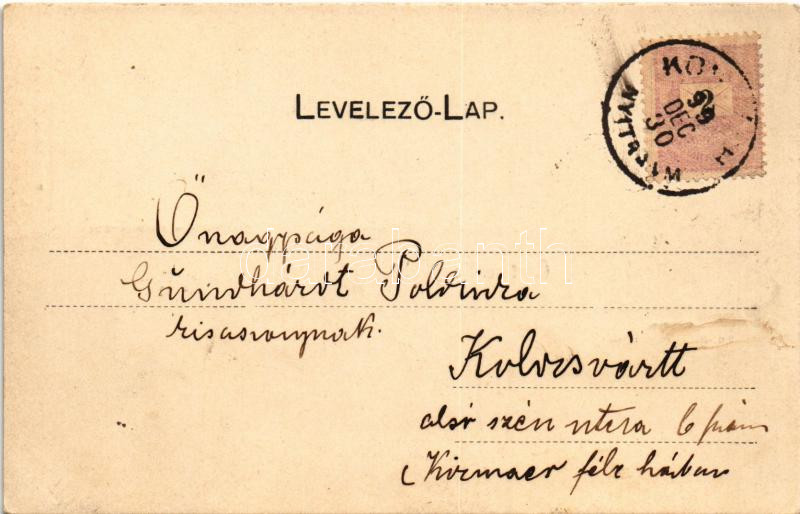 LEVELEZŐ-LAP.
99
DEC
30
Őnagysága
Gundhárdt Poldinka
kisasszonynak.
Kolozsvártt
alsó szén utcza 6 szám
(Kirmaer féle házban
darabanth